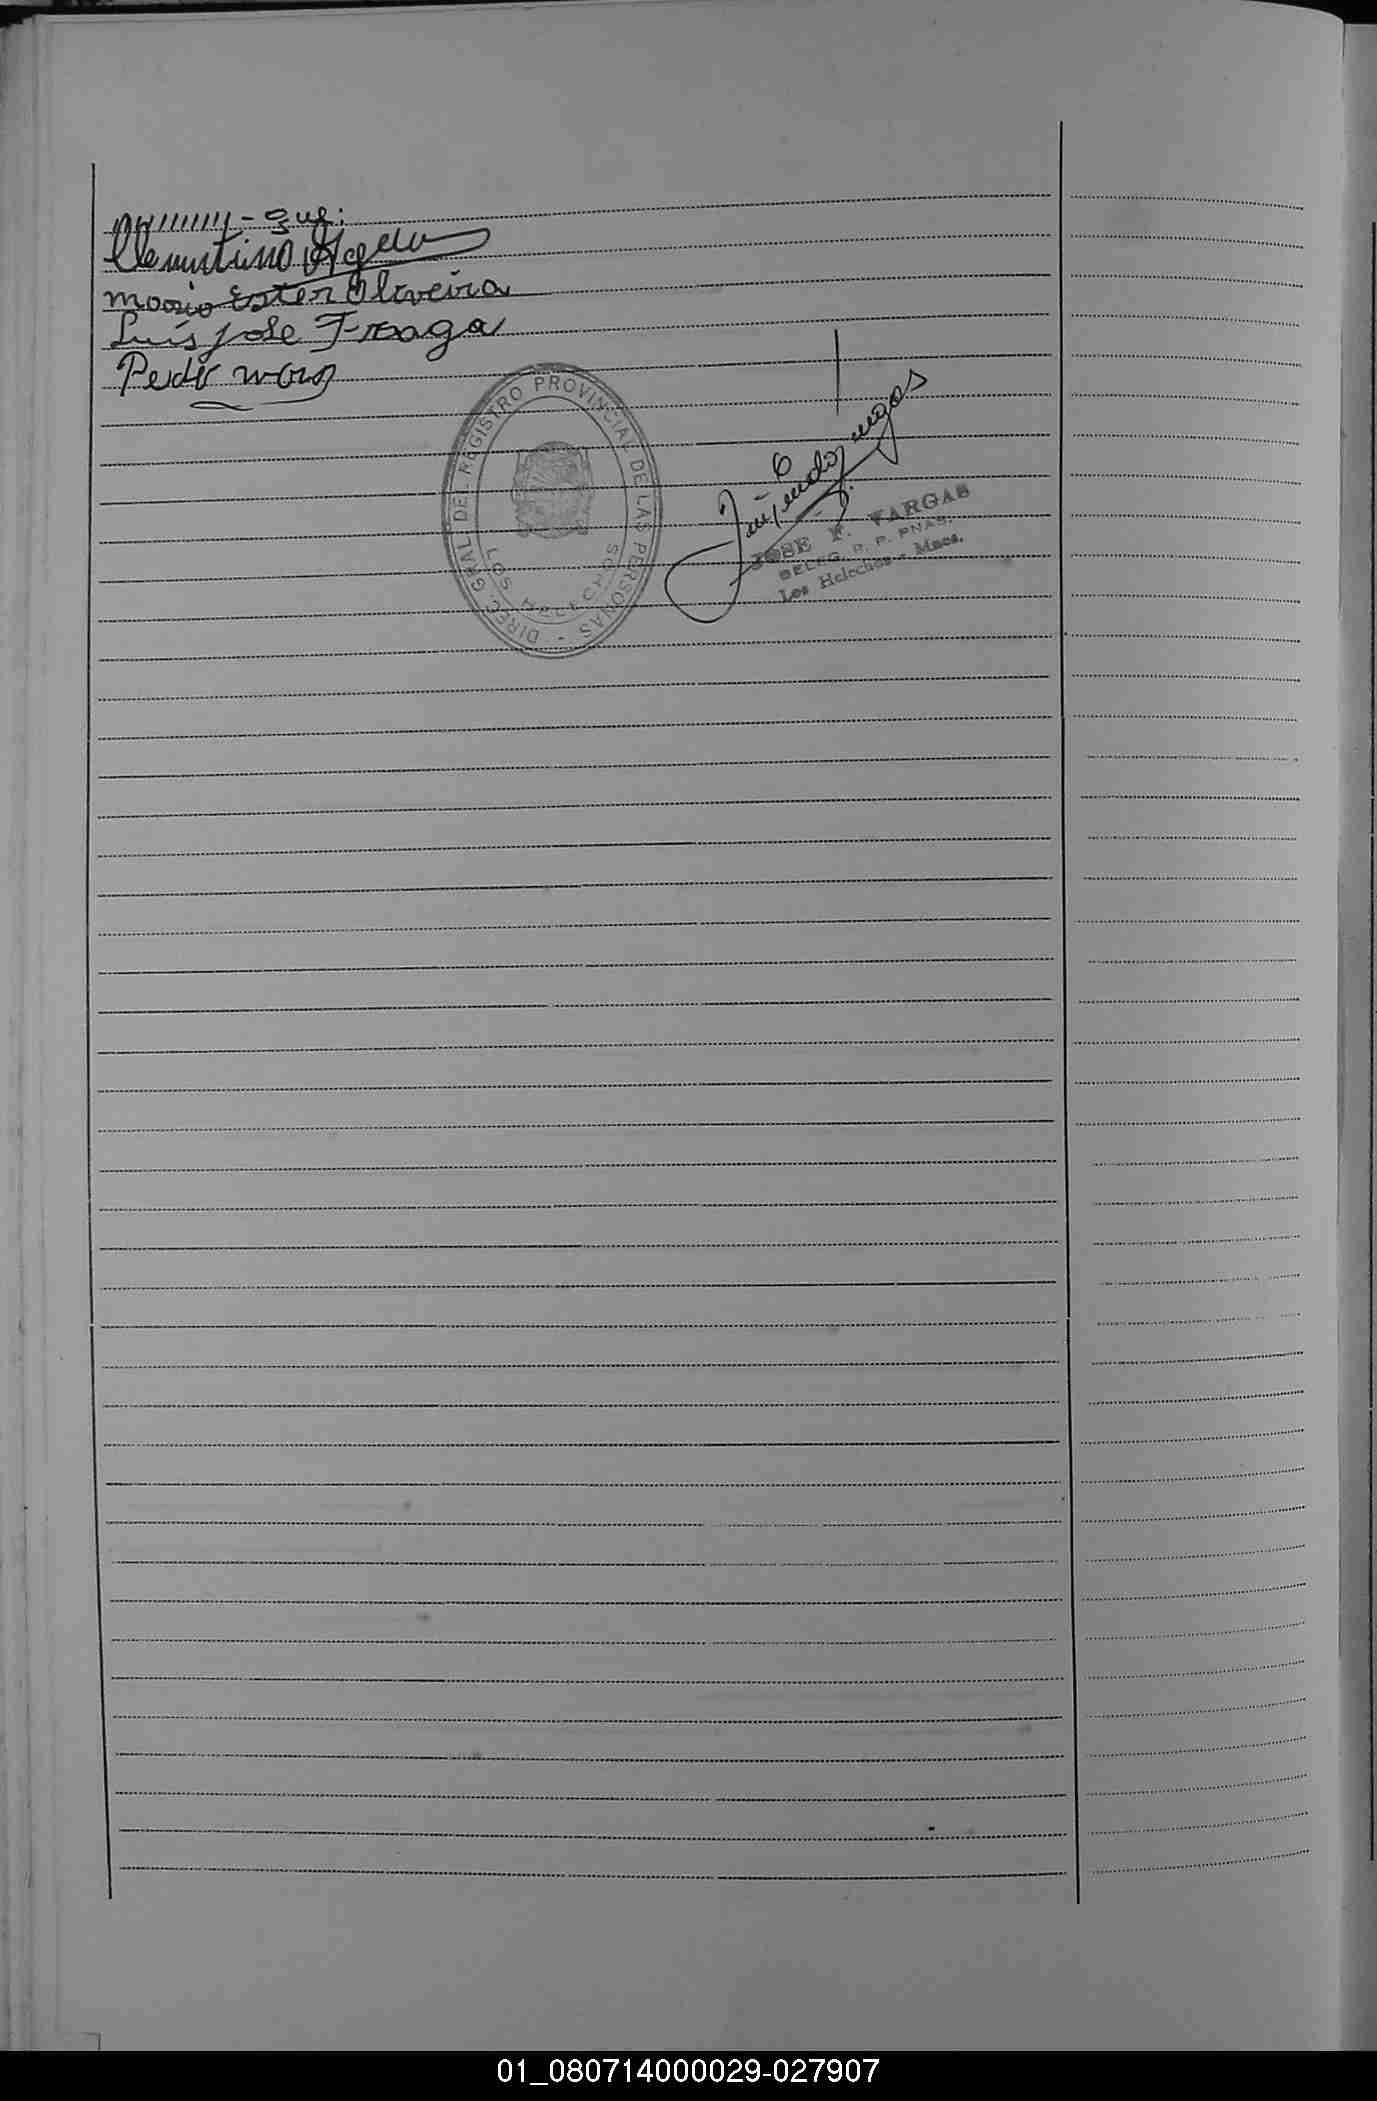 que:
Clementino
Maria Ester Oliveira
Luis Jose Fraga
Pedro
DIREC. GRAL. DEL REGISTRO PROVINCIAL DE LAS PERSONAS -
LOS HELECHOS
JOSE F. VARGAS
DELEG. R. P. PNAS.
Los Helechos - Mnes.
01_080714000029-027907